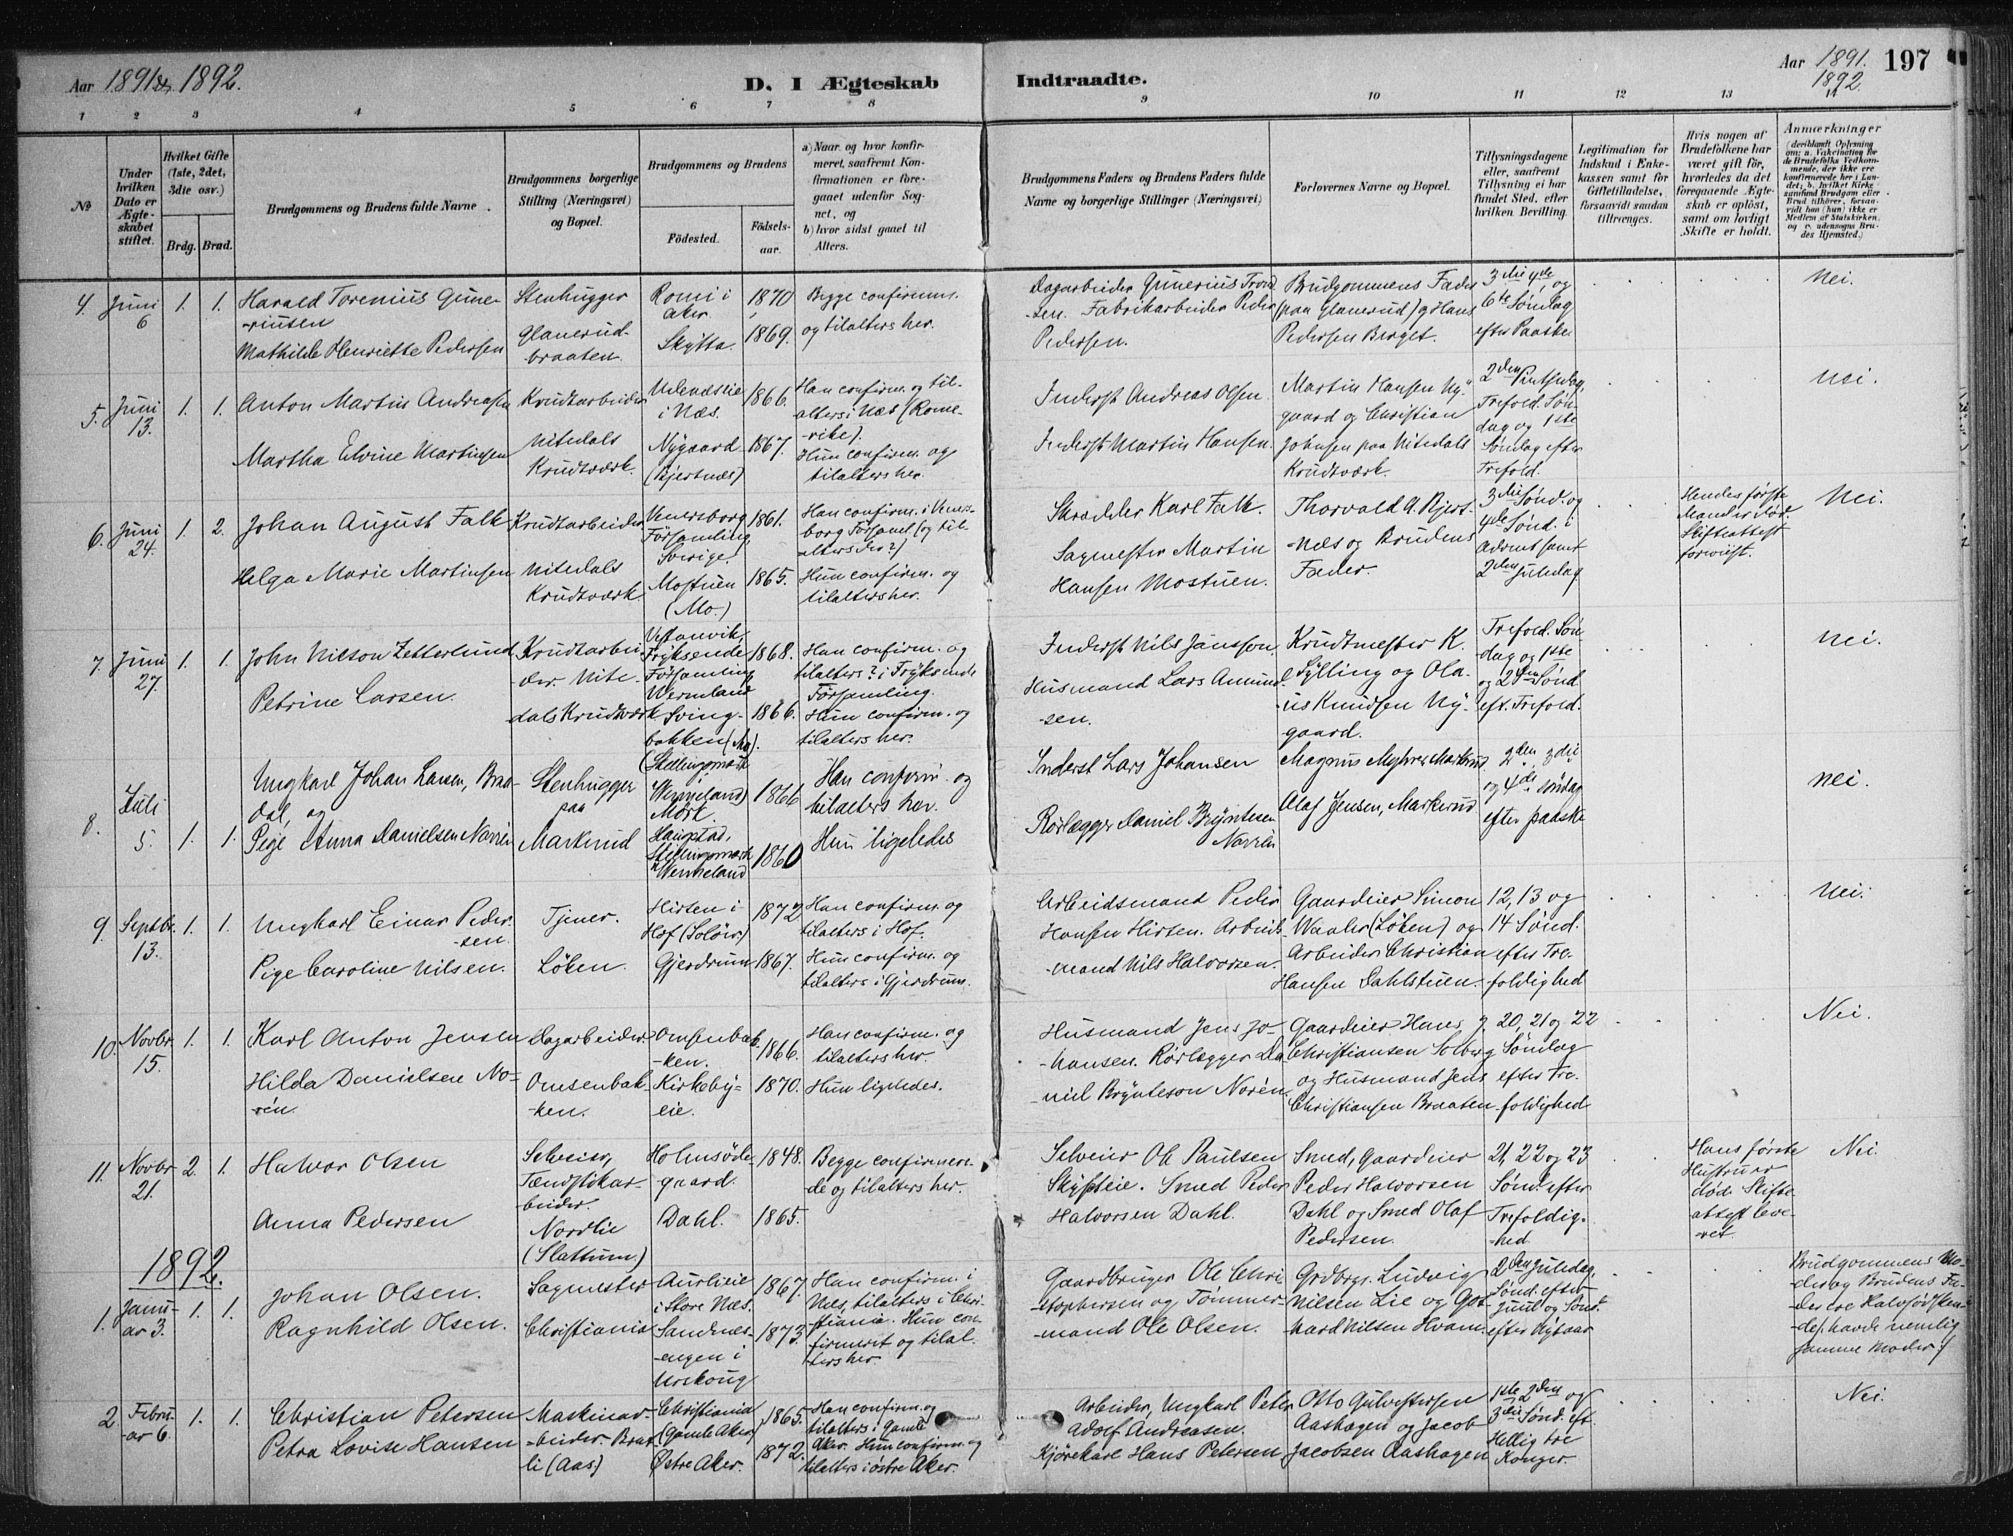 Aar 1891 & 1892.
D. I Ægteskab Indtraadte.
Aar 1891. 1892. 197
1 2 3 4 5 6 7 8 9 10 11 12 13 14
No
Under hvilken Dato er Ægteskabet stiftet.
Hvilket Gifte (1ste, 2det, 3die osv.)
Brdg. Brud.
Brudgommens og Brudens fulde Navne.
Brudgommens borgerlige Stilling (Næringsvei) og Bopæl.
Brudgommens og Brudens
Födested. Födselsaar.
a) Naar og hvor konfirmeret, saafremt Konfirmationen er foregaaet udenfor Sognet, og
b) hvor sidst gaaet til Alters.
Brudgommens Faders og Brudens Faders fulde Navne og borgerlige Stillinger (Næringsvei)
Forlovernes Navne og Bopæl.
Tillysningsdagene eller, saafremt Tillysning ei har fundet Sted, efter hvilken Bevilling.
Legitimation for Indskud i Enkekassen samt for Giftetilladelse, forsaavidt saadan tiltrænges.
Hvis nogen af Brudefolkene har været gift för, hvorledes da det foregaaende Ægteskab er oplöst, samt om lovligt Skifte er holdt.
Anmærkninger
4. Juni 6 1. 1. Harald Torenius Guneriusen
Mathilde Henriette Pedersen
Stenhugger Glanerudbraaten.
Romi i Aker. 1870
Skytta. 1869.
Begge confirmm. og tilalters her.
Dagarbeider Gunerius Tordsen. Fabrikarbeider Peder Pedersen.
Brudgommens Fader (paa Glanerud) og Hans Pedersen Berget.
3die 4de, og 6te Søndag efter Paaske
Nei.
5. Juni 13. 1. 1. Anton Martin Andreasen
Martha Elvine Martinsen
Krudtarbeider Nitedals Krudtværk.
i Næs. 1866.
Nygaard (Bjertnæs) 1867.
Han confirm. og tilalters i Næs (Romerike).
Hun confirm. og tilalters her.
Inderst Andreas Olsen.
Inderst Martin Hansen.
Martin Hansen Nygaard og Christian Johnsen paa Nitedals Krudtværk.
2den Pintsedag, Trefold. Søndag og 1ste Søndag efter Trefold.
Nei.
6. Juni 24. 1. 2. Johan August Falk
Helga Marie Martinsen
Krudtarbeider Nitedals Krudtværk
Venersborg Församling Sverige. 1861.
Mostuen (Mo.) 1865.
Han confirm. i Venersborg Församl. (og tilalters der?)
Hun confirm. og tilalters her.
Skrædder Karl Falk.
Sagmester Martin Hansen Mostuen.
Thorvald A. Bjertnæs og Brudens Fader.
3die Sønd. og 4de Sønd. i Advent samt 2den Juledag
Hendes første Mand er død. Skifteattest forevist.
Nei.
7. Juni 27. 1. 1. John Nilson Zetterlund
Petrine Larsen.
Krudtarbeider Nitedals Krudtværk
Vestanvik, Fryksende Församling Wermland 1868.
Svingbakken (Mo). 1866.
Han confirm. og tilalters? i Fryksende Församling.
Hun confirm. og tilalters her.
Inderst Nils Jansson.
Husmand Lars Amundsen.
Krudtmester K. Sylling og Olaus Knudsen Nygaard.
Trefold. Søndag og 1ste og 2den Sønd. eft. Trefold.
Nei.
8. Juli 5. 1. 1. Ungkarl Johan Larsen, Braadal, og
Pige Anna Danielsen Norrén
Stenhugger paa Markerud
1866
Wermeland 1860
Han confirm. og tilalters her.
Hun ligeledes
Inderst Lars Johansen
Rørlægger Daniel Bryntesen Norrén
Magnus Myhrer, Markerud
Olaf Jensen, Markerud
2den, 3die og 4de søndag efter paaske
Nei.
9. Septbr. 13. 1. 1. Ungkarl Einar Pedersen.
Pige Caroline Nilsen.
Tjener. Löken.
Hirten i Hof (Solör) 1872
Gjerdrum 1867.
Han confirm. og tilalters i Hof.
Hun confirm. og tilalters i Gjerdrum.
Arbeidsmand Peder Hansen Hirten. Arbeidsmand Nils Halvorsen.
Gaardeier Simon Waaler (Löken) og Arbeider Christian Hansen Dahlstuen.
12, 13 og 14 Sønd. efter Trefoldighed
Nei.
10. Novbr. 15. 1. 1. Karl Anton Jensen
Hilda Danielsen Norén.
Dagarbeider Omsenbakken.
Omsenbakken. 1866.
Kirkebyeie. 1870.
Han confirm. og tilalters her.
Hun ligeledes.
Husmand Jens Johansen. Rørlægger Daniel Brynteson Norén.
Gaardeier Hans Christiansen Solberg og Husmand Jens Christiansen Braaten.
20, 21 og 22 Søndag efter Trefoldighed
Nei.
11. Novbr. 21. 2. 1. Halvor Olsen
Anna Pedersen
Selveier, Tændstikarbeider. Nordlie (Slattum)
Holmsødegaard. 1848.
Dahl. 1865.
Begge confirmerede og tilalters her.
Selveier Ole Paulsen Skytteie. Smed Peder Halvorsen Dahl.
Smed, Gaardeier Peder Halvorsen Dahl og Smed Olaf Pedersen.
21, 22 og 23 Sønd. efter Trefoldighed
Hans første Hustru er død. Skifteattest leveret.
Nei.
1892.
1. Januar 3. 1. 1. Johan Olsen.
Ragnhild Olsen.
Sagmester Christiania
Aurlieie i Store Næs. 1867.
Sandnesengen i Urskoug 1873.
Han confirm. i Næs, tilalters i Christiania. Hun confirmerit og tilalters her.
Gaardbruger Ole Christophersen og Tømmermand Ole Olsen.
Grdbrgr. Ludvig Nilsen Lie og Gotmard Nilsen Hvam.
2den Juledag, Sønd. efter Juul og Sønd. efter Nytaar
Brudgommens Moder og Brudens Fader ere Halvsødsken de, havde nemlig samme Moder.
2. Februar 6. 1. 1. Christian Petersen
Petra Lovise Hansen
Maskinarbeider. Bratli (Aas)
Christiania (Gamle Aker) 1865.
Østre Aker. 1872.
Han confirm. og tilalters i Gamle Aker. Hun confirm. og tilalters i østre Aker.
Arbeider, Ungkarl Peter Adolf Andreasen.
Kjørekarl Hans Petersen
Otto Gulvettersen Aashagen og Jacob Jacobsen Aashagen
1ste 2den og 3die Sønd. eft. Hellig tre Konger.
Nei.